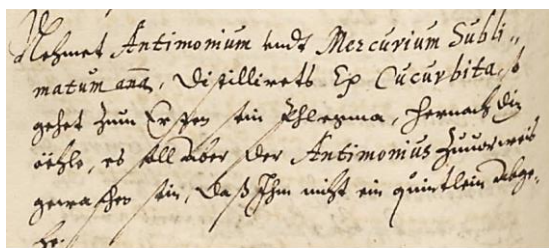 Nehmet Antimonium undt Mercurium Subli-
matum ana, Distillirets Ex Cucurbita, so
gehet zum Ersten sein Phlegma, hernach die
öehle, es soll aber der Antimonius zuuor weis
gewaschen sein, daß Ihm nicht ein quintlein abge-
he.